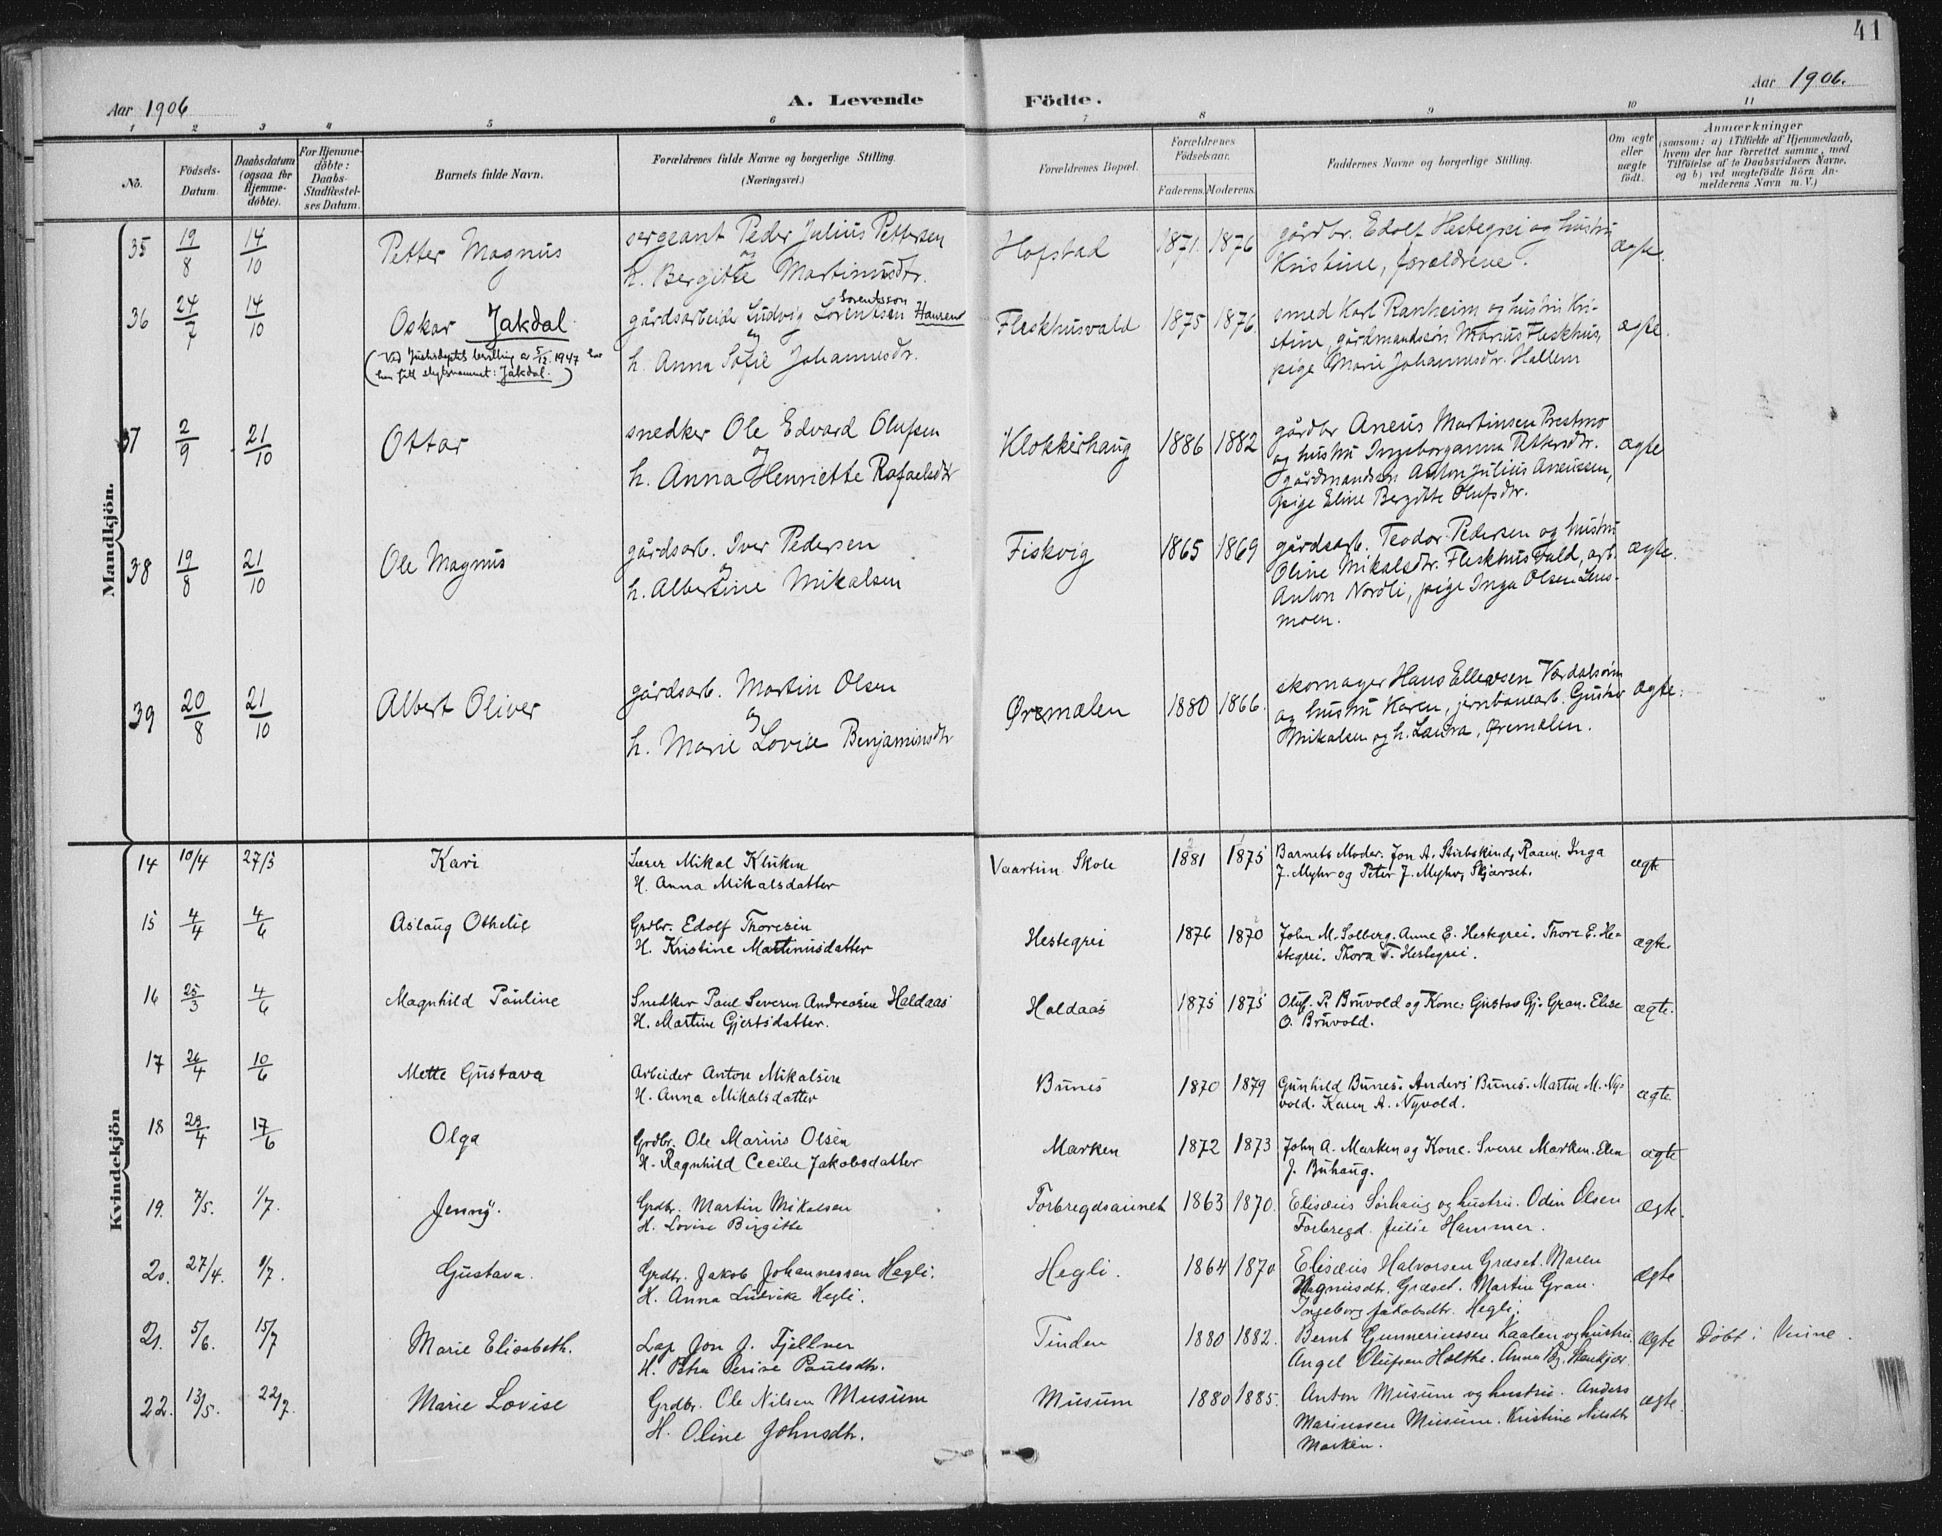 41
Aar 1906
A. Levende
Födte.
Aar 1906.
1 2 3 4 5 6 7 8 9 10 11
No.
Födsels-
Datum.
Daabsdatum
(ogsaa for
Hjemme-
döbte).
For Hjemme-
döbte:
Daabs-
Stadfæstel-
ses Datum.
Barnets fulde Navn.
Forældrenes fulde Navne og borgerlige Stilling.
(Næringsvei.)
Forældrenes Bopæl.
Forældrenes
Födselsaar.
Faderens. Moderens.
Faddernes Navne og borgerlige Stilling.
Om ægte
eller
uægte
födt.
Anmærkninger
(saasom: a) i Tilfælde af Hjemmedaab,
hvem der har forrettet samme, med
Tilföielse af to Daabsvidners Navne,
og b) ved uægtefödte Börn An-
melderens Navn m. V.)
Mandkjön.
35 19/8 14/10 Petter Magnus
sergeant Peder Julius Pettersen
og
h. Bergitte Martinusdtr.
Hofstad 1871. 1876
gårdbr. Edolf Hestegrei og hustru
Kristine, forældrene.
ægte.
36 24/7 14/10 Oskar Jakdal
(Ved Justisdeptets bevilling av 5/12 1947 har
han fått slegtsnavnet: Jakdal.)
Lorentsson
gårdsarbeide Ludvig Lorentsen Hansen
og
h. Anna Sofie Johannesdr.
Fleskhusvald 1875 1876
smed Karl Ranheim og hustru Kri-
stine, gårdmandssøn Marius Fleskhus,
pige Marie Johannesdr. Hallem
ægte.
37 2/9 21/10 Ottar
snedker Ole Edvard Olufsen
og
h. Anna Henriette Rafaelsdtr
Klokkerhaug 1886 1882
gårdbr Aneus Martinsen Prestmo
og hustru Ingeborganna Pettersdtr.
gårdmandssøn Anton Julius Aneussen,
pige Eline Bergitte Olufsdtr.
ægte
38 19/8 21/10 Ole Magnus
gårdsarb. Iver Pedersen
og
h. Albertine Mikalsen
Fiskvig 1865 1869
gårdsarb. Teodor Pedersen og hustru
Oline Mikalsdtr. Fleskhusvald, arb.
Anton Nordli, pige Inga Olsen Lens-
moen.
ægte.
39 20/8 21/10 Albert Oliver
gårdsarb. Martin Olsen
og
h. Marie Lovise Benjaminsdtr
Øremælen 1880 1866.
skomager Hans Ellevsen Værdalsøra
og hustru Karen, jernbanearb. Gustav
Mikalsen og h. Laura, Øremælen.
ægte.
Kvindekjön
14 10/4 27/5 Kari
Lærer Mikal Kluken
H. Anna Mikalsdatter
Vaartun Skole 1881 1875
Barnets Moder. Jon A. Stubskind, Raaen. Inga
J. Myhr og Peter J. Myhr, Skjørset.
ægte
15 4/4 4/6 Aslaug Othelie
Grdbr. Edolf Thoresen
H. Kristine Martinusdatter
Hestegrei 1876 1870
John M. Solberg. Anne E. Hestegrei. Thore E. He-
stegrei. Thora T. Hestegrei.
ægte.
16 25/3 4/6 Magnhild Pauline
Snedker Paul Severin Andreasen Haldaas
H. Martine Gjertsdatter.
Haldaas 1875 1875
Oluf P. Bruvold og Kone. Gustav Gj. Gran. Elise
O. Bruvold.
ægte.
17 26/4 10/6 Mette Gustava
Arbeider Anton Mikalsen
H. Anna Mikalsdatter
Bunes 1870 1879
Gunhild Bunes. Anders Bunes. Martin M. Ny-
vold. Karen A. Nyvold.
ægte
18 23/4 17/6 Olga
Grdbr. Ole Marius Olsen
H. Ragnhild Cecilie Jakobsdatter
Marken 1872 1873
John A. Marken og Kone. Sverre Marken. Elen
J. Buhaug.
ægte
19. 7/5. 1/7. Jenny.
Grdbr. Martin Mikalsen
H. Lovise Birgitte
Forbregdsaunet 1863 1870.
Elisæus Sørhaug og hustru. Odin Olsen
Forbregd. Julie Hammer.
ægte.
20. 27/4. 1/7. Gustava.
Grdbr. Jakob Johannessen Hegli.
H. Anna Ludvike Hegli.
Hegli. 1864 1870
Elisæus Halvorsen Græset. Maren
Magnusdt. Græset. Martin Gran.
Ingeborg Jakobsdtr. Hegli.
ægte
21. 5/6. 15/7 Marie Elisabeth.
Lap Jon J. Fjellner
H. Petra Serine Paulsdtr.
Tinden 1880 1882.
Bernt Gunneriussen Kaalen og hustru.
Angel Olufsen Holthe. Anna Bg. Stenkjær.
ægte Døbt i Vinne.
22. 13/5. 22/7. Marie Lovise
Grdbr. Ole Nilsen Musum
H. Oline Johnsdtr.
Musum 1880 1885.
Anton Musum og hustru. Anders
Mariussen Musum. Kristine Nilsdtr
Marken.
ægte.